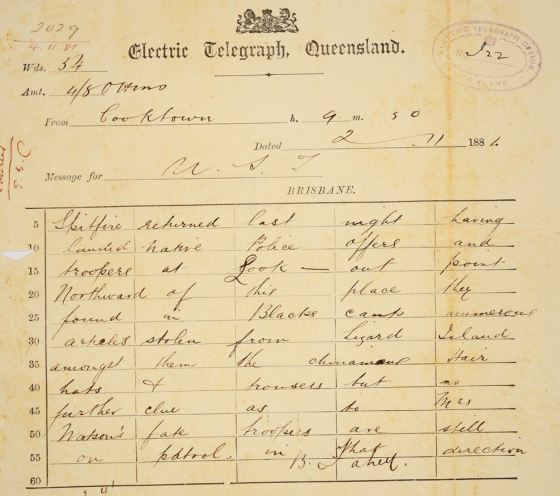 2029
4.11.81
Electric Telegraph, Queensland.
ELECTRIC TELEGRAPH OFFICE
Wds. 54
Amt. 4/8 OHMS
From Cooktown h. 9 m. 30
Dated 2 11 1881.
Message for U. S. T
BRISBANE.
5 Spitfire returned last night having
10 landed native Police offers and
15 troopers at Look - out point
20 Northward of this place they
25 found in Blacks camp numerous
30 articles stolen from Lizard Island
35 amongst them the chinamens Hair
40 hats & trousers but no
45 further clue as to Mrs
50 Watson's fate troopers are still
55 on patrol in that direction
B. Fahey.
60